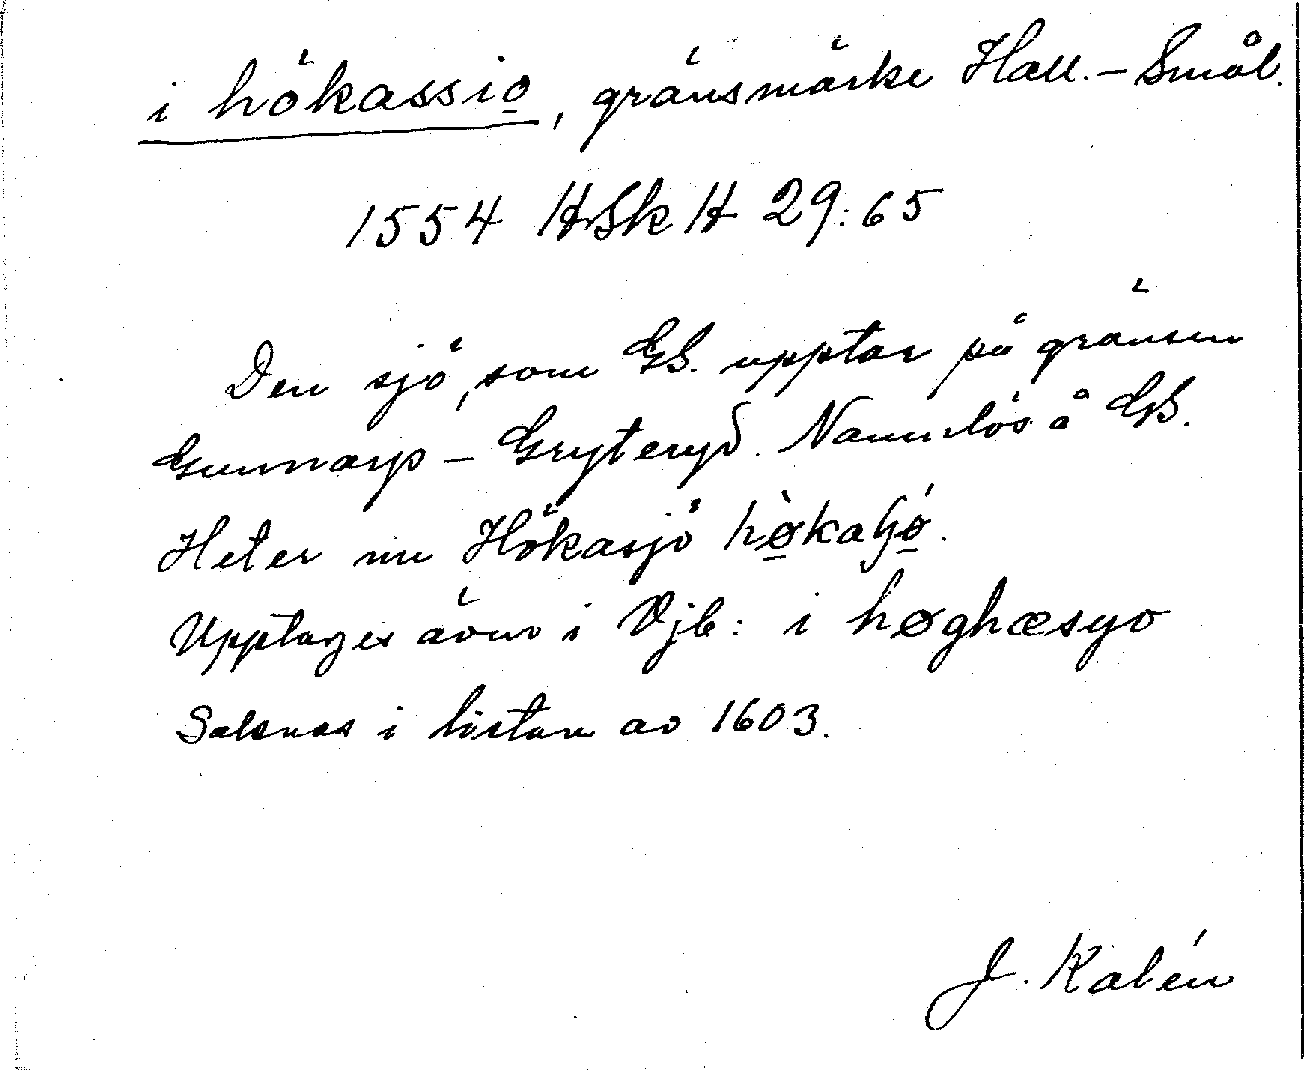 i hökassio, gränsmärke Hall. – Smål.
1554 HSkH 29:65
Den sjö, som GS. upptar på gränsen
Gunnarp – Gryteryd. Namnlös å GS.
Heter nu Hökasjö
Upptages även i Vjb: i høghæsyo
Saknas i listan av 1603.
J. Kalén